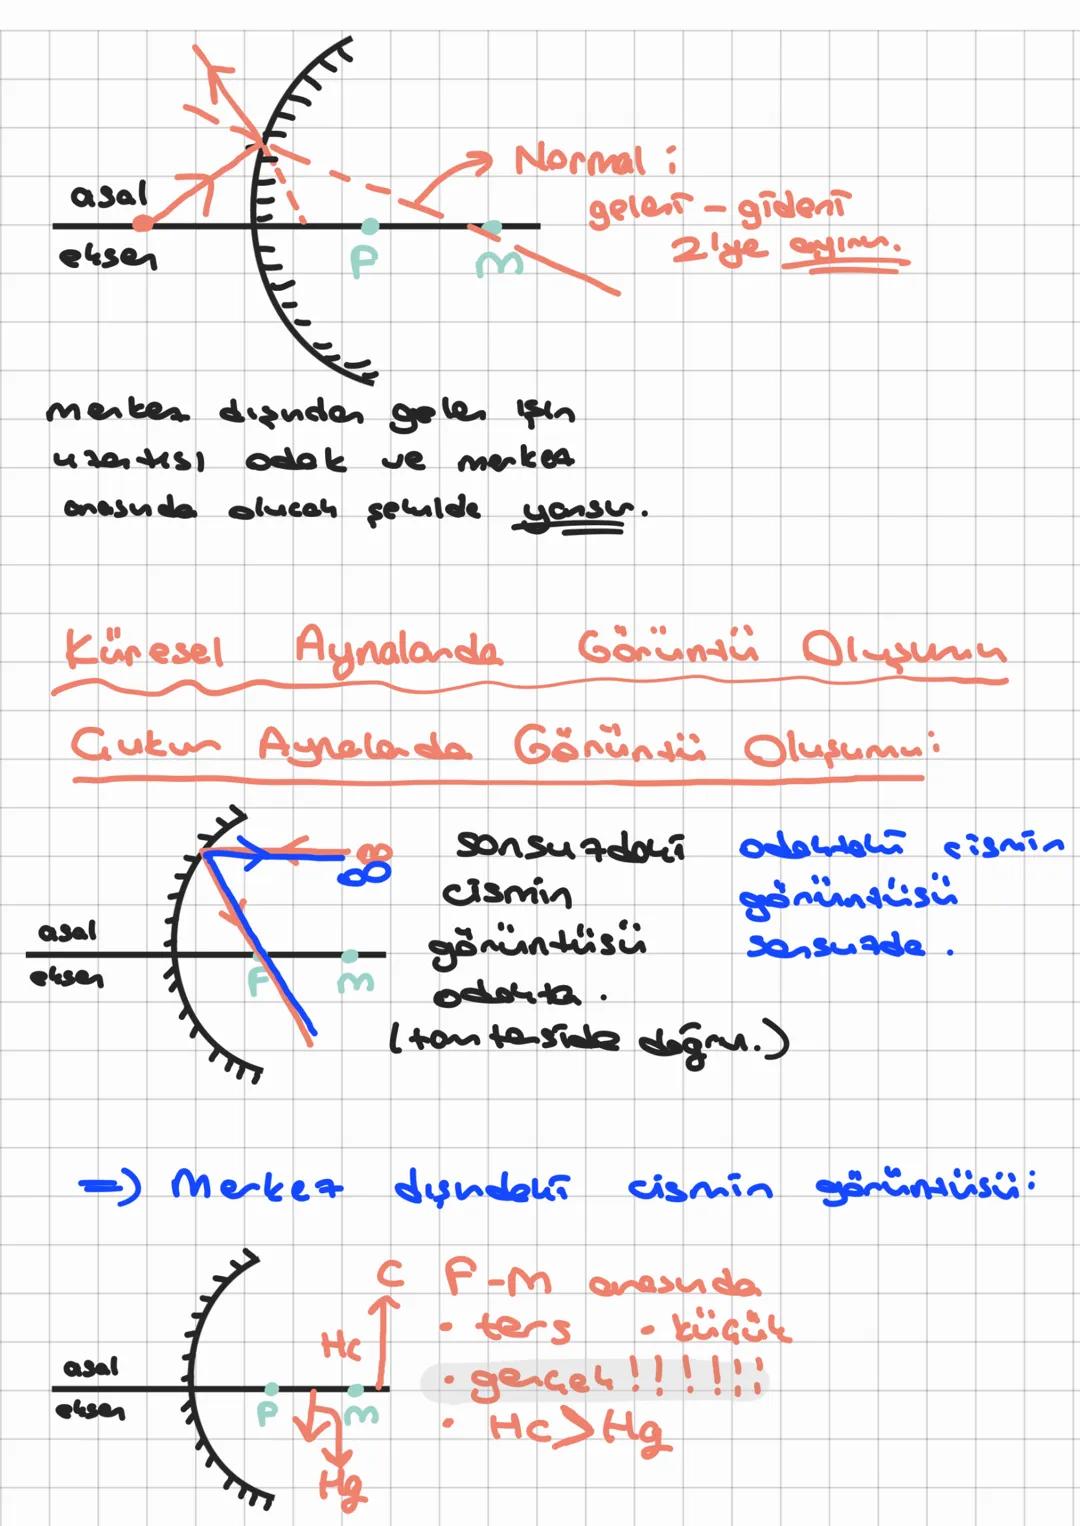 asal
eksen
F
M
Normal :
geleni - gideni
2'ye ayırır.
merkez dışından gelen ışın
uzantısı odak ve merkez
arasında olucak şekilde yansır.
Küresel Aynalarda Görüntü Oluşumu
Çukur Aynalarda Görüntü Oluşumu:
asal
eksen
F
M
∞
∞
sonsuzdaki
cismin
görüntüsü
odakta.
(tam terside doğru.)
odaktaki cismin
görüntüsü
sonsuzda.
=> Merkez dışındaki cismin görüntüsü:
asal
eksen
F
M
C
Hc
Hg
F-M arasında
• ters • küçük
• gerçek!!!!!!
• Hc>Hg